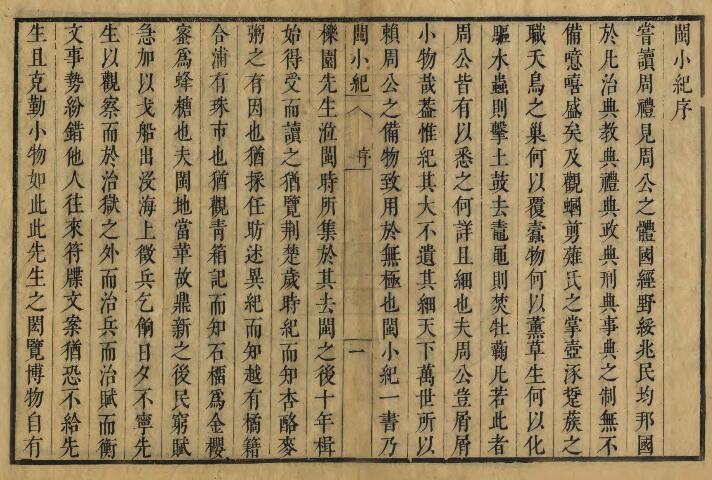 閩小紀序
嘗讀周禮見周公之體國經野綏兆民均邦國
於凡治典教典禮典政典刑典事典之制無不
備噫嘻盛矣及觀蟈剪薙氏之掌壺涿硩蔟之
職夭鳥之巢何以覆蠹物何以薰草生何以化
驅水蟲則擊土鼓去鼃黽則焚牡蘜凡若此者
周公皆有以悉之何詳且細也夫周公豈屑屑
小物哉葢惟紀其大不遺其細天下萬世所以
賴周公之備物致用於無極也閩小紀一書乃
閩小紀 序 一
櫟園先生涖閩時所集於其去閩之後十年楫
始得受而讀之猶覽荆楚歲時紀而知杏酪麥
粥之有因也猶採任昉述異紀而知越有橘籍
合浦有珠市也猶觀青箱記而知石橊爲金櫻
蜜爲蜂糖也夫閩地當革故鼎新之後民窮賦
急加以戈船出沒海上徵兵乞餉日夕不寧先
生以觀察而於治獄之外而治兵而治賦而衡
文事勢紛錯他人往來符牒文案猶恐不給先
生且克勤小物如此此先生之閎覽博物自有